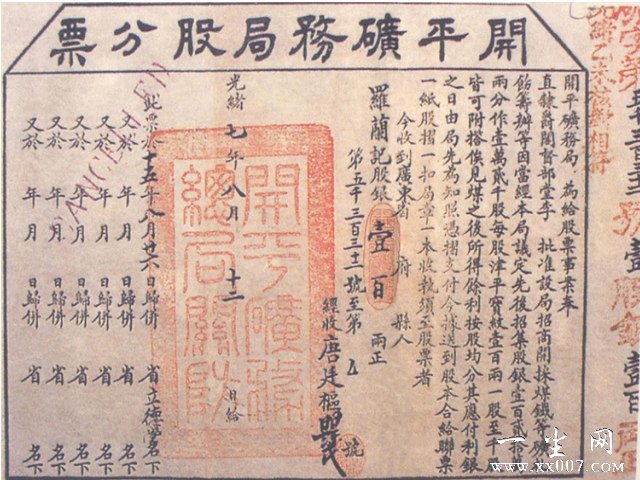 開平礦務局股分票
開平礦務局為給股票事案奉
直隸爵閣督部堂李 批准設局招商開採煤鐵等礦
飭籌辦等因當經本局議定先後招集股銀壹百貳拾
兩分作壹萬貳千股每股津平寶紋壹百兩一股至千
皆可附搭俟見煤之後所得餘利按股均分其應付利銀
之日由局先為知照憑摺支付今據送到股本合給聯票
一紙股摺一扣局章一本收執須至股票者
今收到廣東省 府 縣人
羅蘭記股銀壹百兩正
第五千三百三十一號至第 號
經收唐廷樞
光緒七年八月十二日給
此票於十五年八月廿六日歸併 省 名下
又於 年 月 日歸併 省 名下
又於 年 月 日歸併 省 名下
又於 年 月 日歸併 省 名下
又於 年 月 日歸併 省 名下
又於 年 月 日歸併 省 名下
CANCELLED
開平礦務總局關防
一生网
www.xx007.com